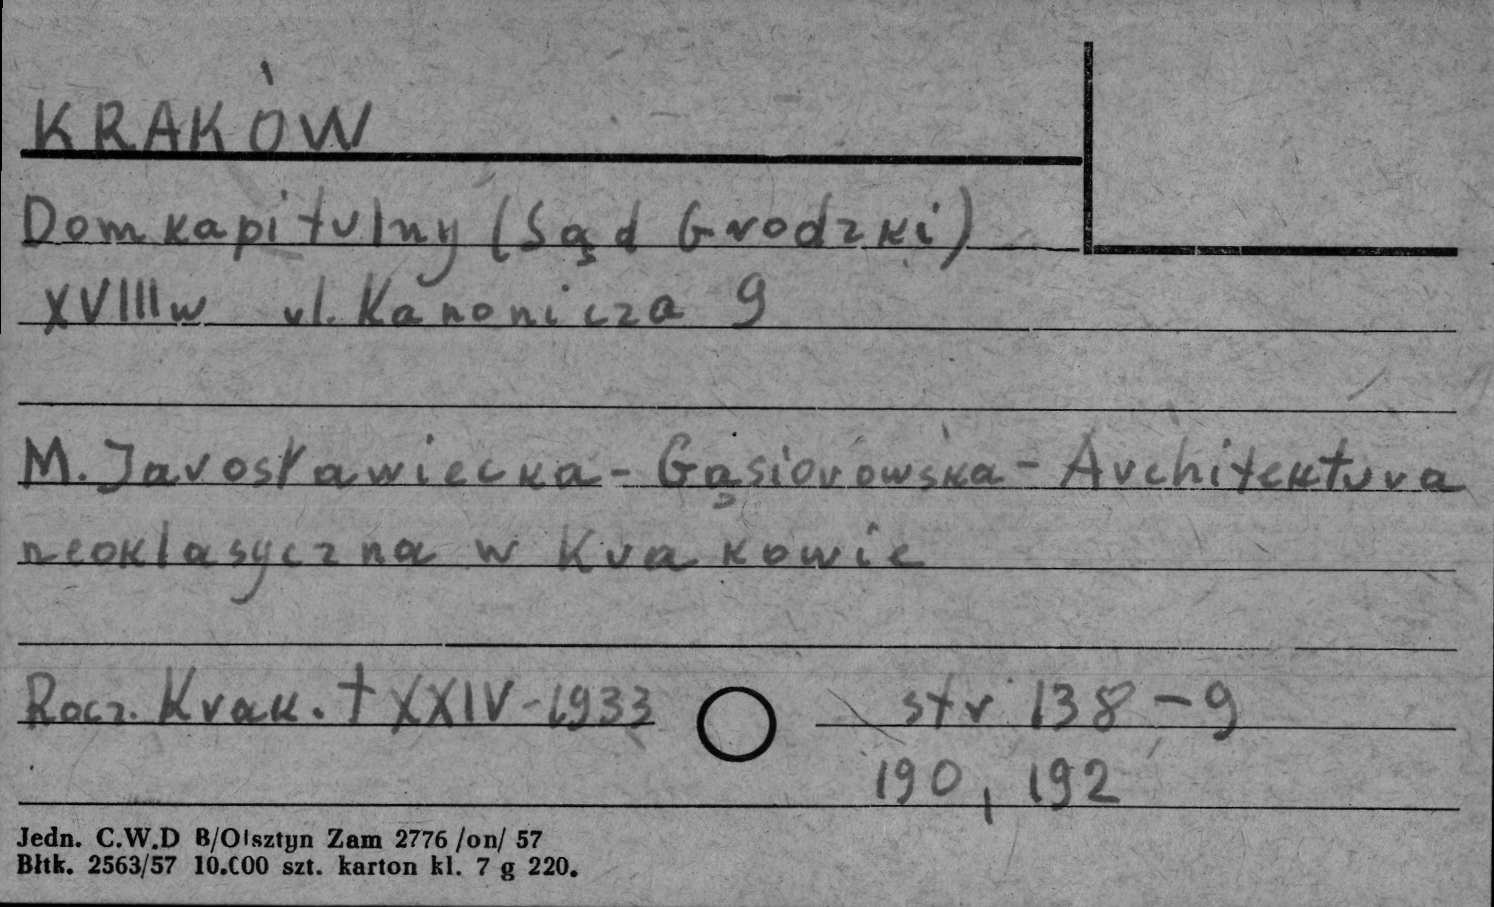 KRAKÓW
Dom kapitulny (Sąd Grodzki)
XVIII w ul. Kanonicza 9
M. Jarosławiecka - Gąsiorowska - Architektura
neoklasyczna w Krakowie
Rocz. Krak. t XXIV - 1933 str 138 - 9
190, 192
Jedn. C.W.D B/Olsztyn Zam 2776 /on/ 57
Błtk. 2563/57 10.000 szt. karton kl. 7 g 220.